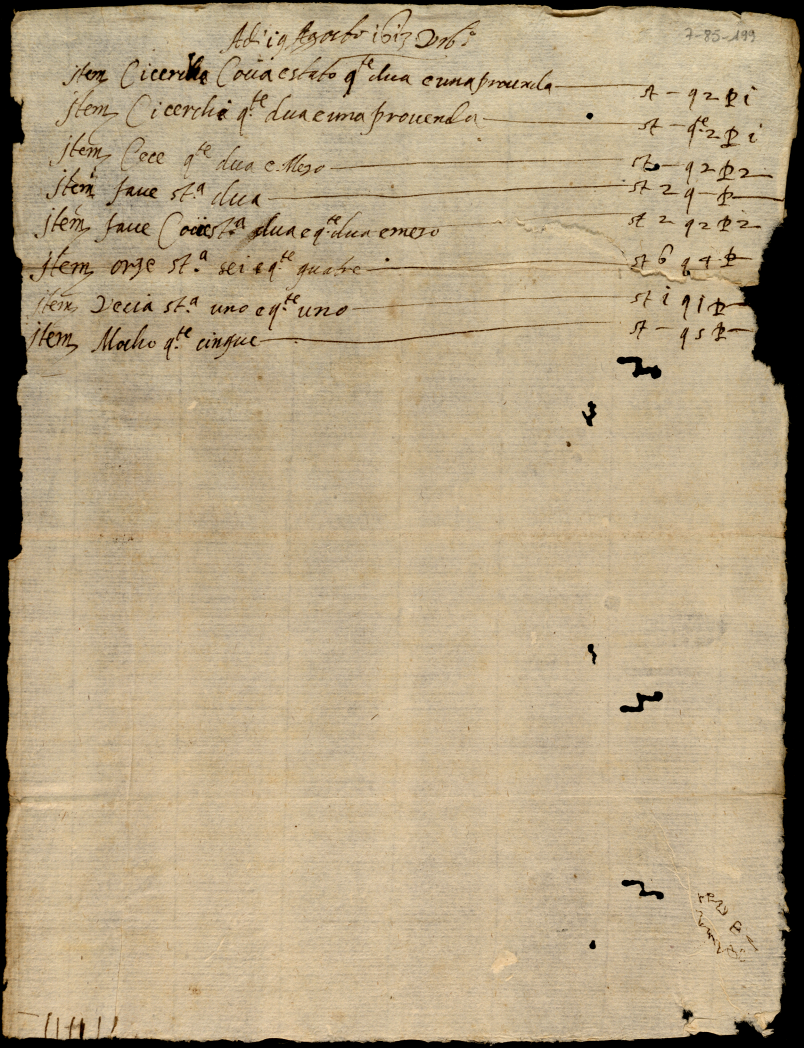 7-85-199
Adi 19 Agosto 1613
Item Cicercha Coua estato q.te dua e una prouenda st - q 2 p i
Item Cicerchi q.te dua e una prouenda st - q.te 2 p i
Item Cece q.te dua e Mezo st - q 2 p 2
Item faue st.a dua st 2 q - p -
Item faue st.a dua e q.te dua e mezo st 2 q 2 p 2
Item orze st.a sei e q.te quatre st 6 q 4 p -
Item Vecia st.a uno e q.te uno st i q 1 p -
Item Mocho q.te cinque st - q 5 p -